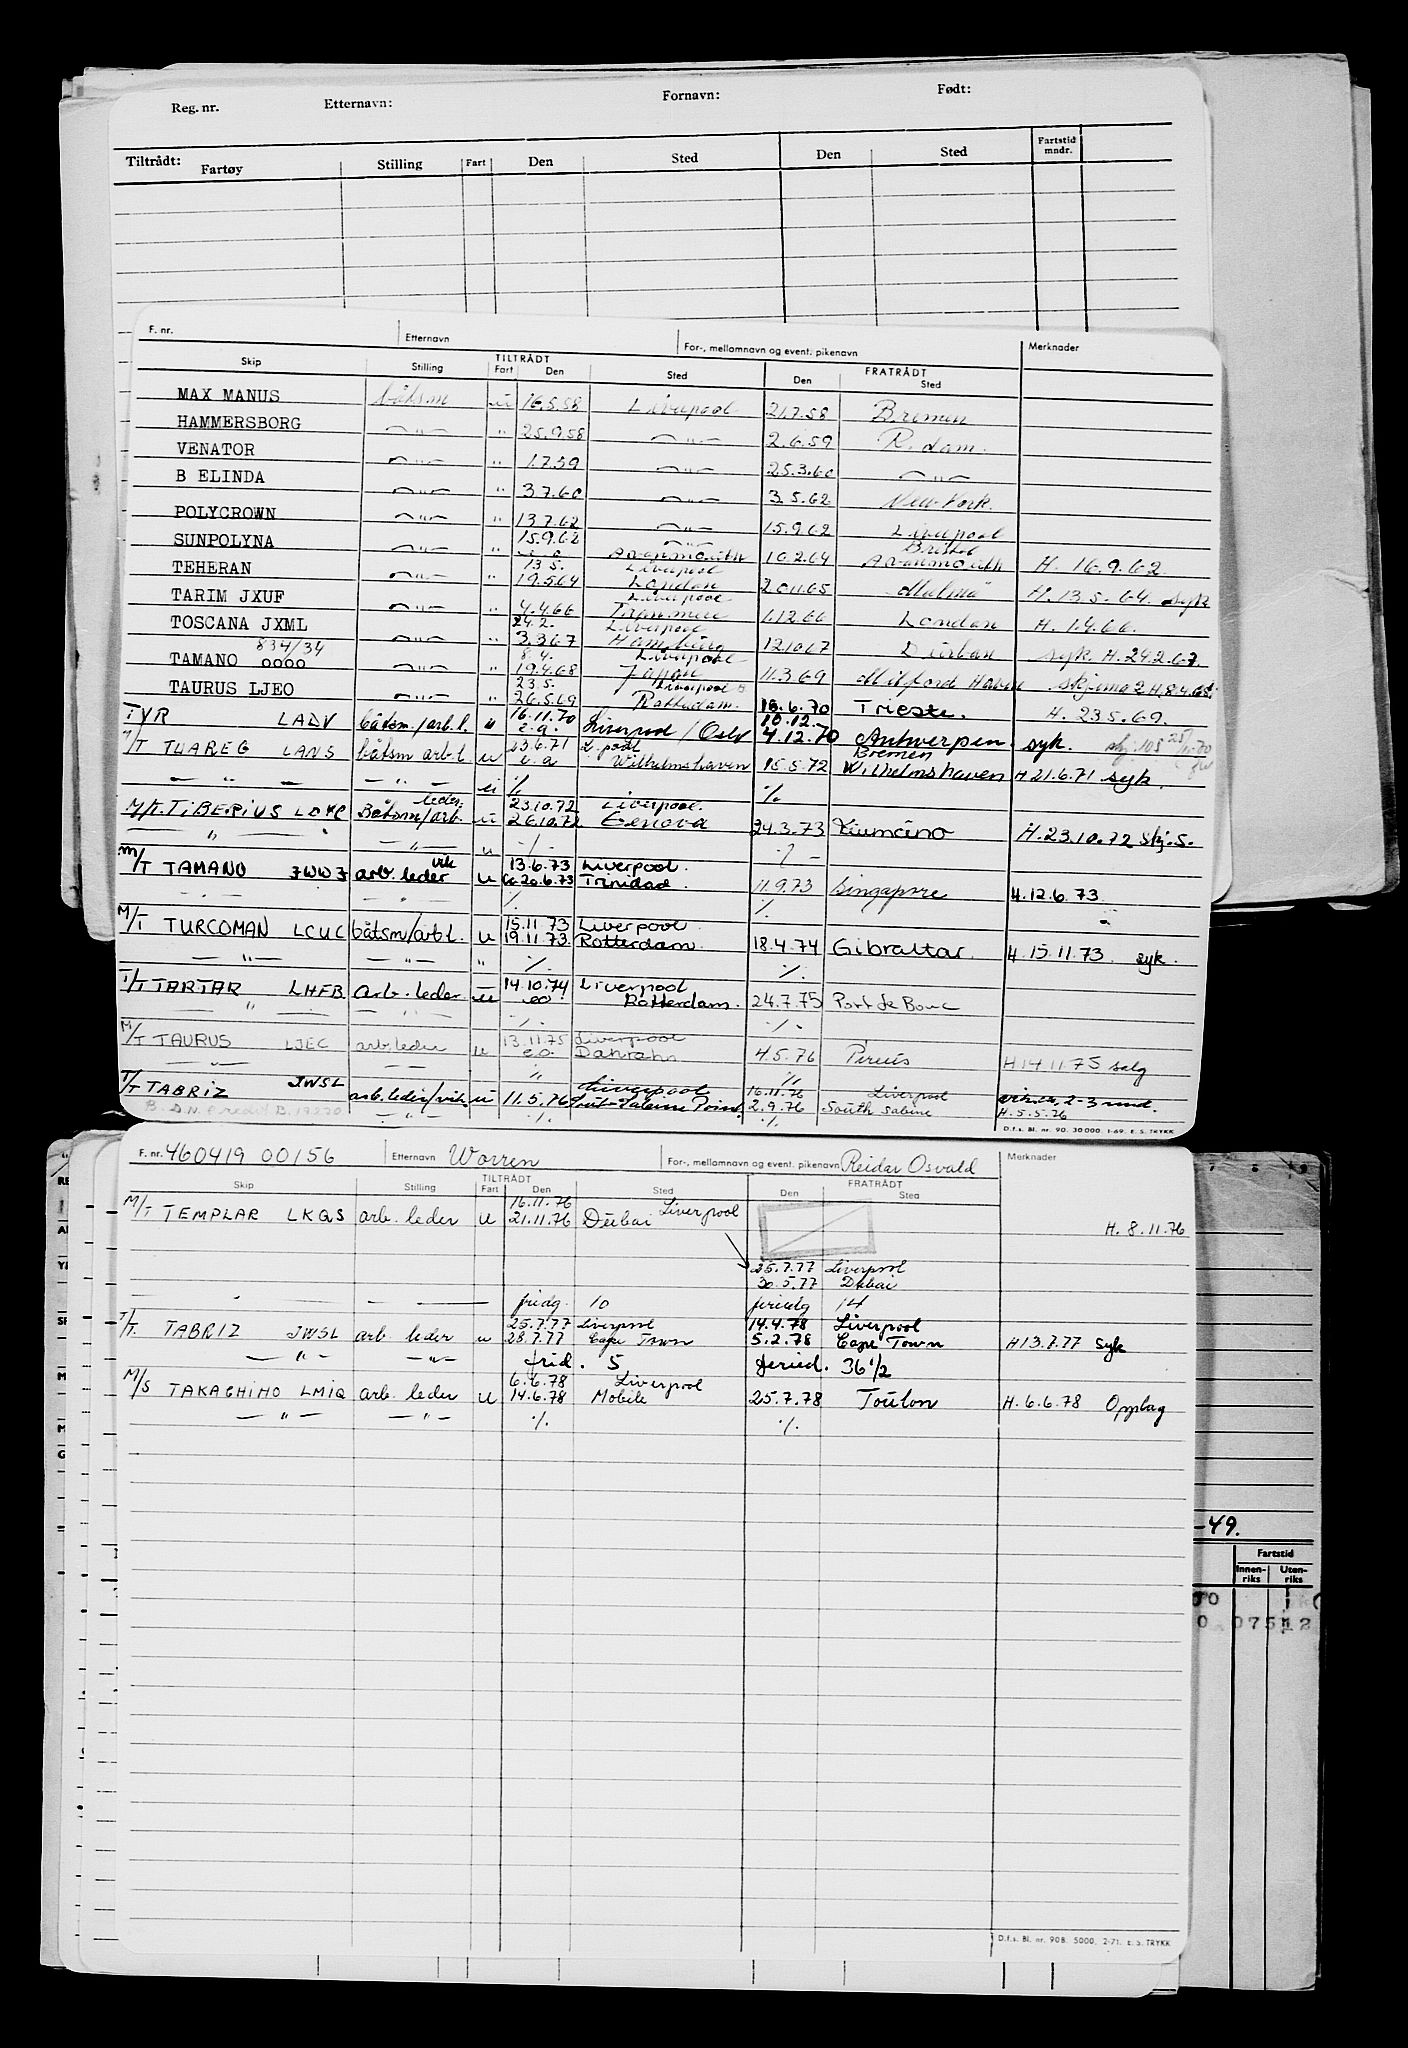 Reg. nr. Etternavn: Fornavn: Født:
Tiltrådt: Fartøy Stilling Fart Den Sted Den Sted Fartstid mndr.
F. nr. Etternavn For-, mellomnavn og event. pikenavn Merknader
TILTRÅDT FRATRÅDT
Skip Stilling Fart Den Sted Den Sted
MAX MANUS båtsm u 16.5.58 Liverpool 21.7.58 Bremen
HAMMERSBORG —"— " 25.9.58 —"— 2.6.59 R.dam.
VENATOR —"— " 1.7.59 —"— 25.3.60 —"—
B ELINDA —"— " 3.7.60 —"— 3.5.62 New York.
POLYCROWN —"— " 13.7.62 —"— 15.9.62 Liverpool
15.9.62 —"— Bristol
SUNPOLYNA —"— " Avonmouth 10.2.64 Avonmouth H. 16.9.62
13.5. Liverpool
TEHERAN —"— " 19.5.64 London 20.11.65 Malmö H. 13.5.64. syk
Liverpool
TARIM JXUF —"— " 4.4.66 Tranmere 1.12.66 London H. 1.4.66.
24.2. Liverpool
TOSCANA JXML —"— " 3.3.67 Hamburg 12.10.67 Durban syk. H. 24.2.67.
834/34 8.4. Liverpool
TAMANO OOOO —"— " 19.4.68 Japan 11.3.69 Milford Haven skjema 2 H.8.4.68
23.5. Liverpool
TAURUS LJEO —"— " 26.5.69 Rotterdam. 18.6.70 Trieste. H. 23.5.69.
16.11.70 10.12.
TYR LADV båtsm./arb.l. u e.a. Liverpool/Oslo 4.12.70 Antwerpen. syk.
23.6.71 L.pool Bremen
M/T TUAREG LANS båtsm arb.l u e.a Wilhelmshaven 15.5.72 Wilhelmshaven H 21.6.71 syk.
— " — — " — u % %
leder. 23.10.72 Liverpool.
M/T. TIBERIUS LDKP Båtsm/arb. u 26.10.72 Genova 24.3.73 Fiumcino H.23.10.72 Skj.S.
— " — — " — u -/- -/-
vik 13.6.73 Liverpool.
M/T TAMANO JWWJ arb. leder u 20.6.73 Trinidad. 11.9.73 Singapore H.12.6.73
— " — — " — % %
15.11.73 Liverpool.
M/T TURCOMAN LCUC båtsm/arb l. u 19.11.73 Rotterdam. 18.4.74 Gibraltar. H.15.11.73 syk.
— " — — " — " % %
14.10.74 Liverpool
T/T TARTAR LHFB arb. leder. u eo Rotterdam. 24.7.75 Port de Bouc
— " — — " — -/- -/-
13.11.75 Liverpool
M/T TAURUS LJEC arb.leder u e.o. Dahrahn 4.5.76 Pireus H 14.11.75 salg
— " — % %
Liverpool 16.11.76 Liverpool
T/T TABRIZ JWSL arb.leder/vik. u 11.5.76 2.9.76 South Sabine 2-3 mnd.
— " — % % H.5.5.76
D.f.s. Bl. nr. 90. 30 000. 1-69. E. S. TRYKK
F. nr. 460419 00156 Etternavn Worren For-, mellomnavn og event. pikenavn Reidar Osvald Merknader
TILTRÅDT FRATRÅDT
Skip Stilling Fart Den Sted Den Sted
16.11.76 Liverpool
M/T TEMPLAR LKQS arb. leder u 21.11.76 Dubai H. 8.11.76
25.7.77 Liverpool
30.5.77 Dubai
fridg. 10 feriedg 14
25.7.77 Liverpool 14.4.78 Liverpool
T/T. TABRIZ JWSL arb leder u 28.7.77 Cape Town 5.2.78 Cape Town H 13.7.77 syk
— " — — " — frid. 5 feried. 36 1/2
6.6.78 Liverpool
M/S TAKACHIHO LMIQ arb. leder u 14.6.78 Mobile 25.7.78 Toulon H. 6.6.78 Opplag
— " — — " — % %
-49.
Fartstid
Innenriks Utenriks
D.f.s. Bl. nr. 90B. 5000. 2-71. E. S. TRYKK